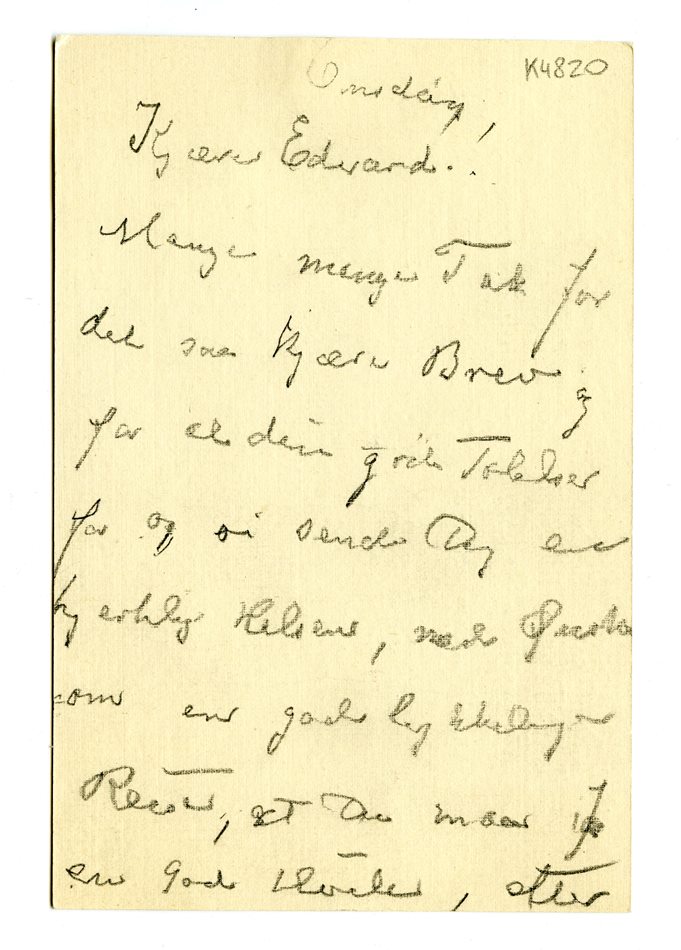 K4820
Onsdag,
Kjære Edvard.!
Mange mange Tak for
det saa kjære Brev og
for al din gode
for og vi sende Dig en
hjertelig Helsen, med Ønske
om en god lykkelig
Reise, at Du maa faa
en god Hvile, efter